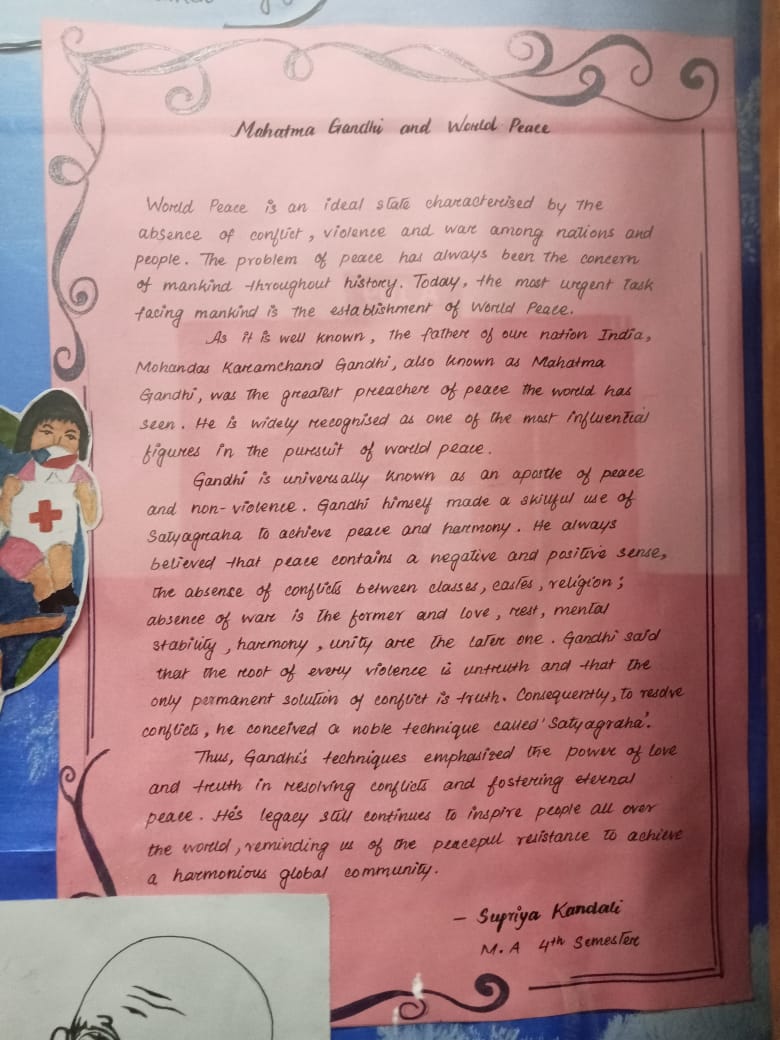 Mahatma Gandhi and World Peace
World Peace is an ideal state characterised by the
absence of conflict, violence and war among nations and
people. The problem of peace has always been the concern
of mankind throughout history. Today, the most urgent task
facing mankind is the establishment of World Peace.
As it is well known, the father of our nation India,
Mohandas Karamchand Gandhi, also known as Mahatma
Gandhi, was the greatest preacher of peace the world has
seen. He is widely recognised as one of the most influential
figures in the pursuit of world peace.
Gandhi is universally known as an apostle of peace
and non-violence. Gandhi himself made a skillful use of
Satyagraha to achieve peace and harmony. He always
believed that peace contains a negative and positive sense,
the absense of conflicts between classes, castes, religion;
absence of war is the former and love, rest, mental
stability, harmony, unity are the later one. Gandhi said
that the root of every violence is untruth and that the
only permanent solution of conflict is truth. Consequently, to resolve
conflicts, he conceived a noble technique called 'Satyagraha'.
Thus, Gandhi's techniques emphasized the power of love
and truth in resolving conflicts and fostering eternal
peace. He's legacy still continues to inspire people all over
the world, reminding us of the peaceful resistance to achieve
a harmonious global community.
- Supriya Kandali
M.A 4th Semester